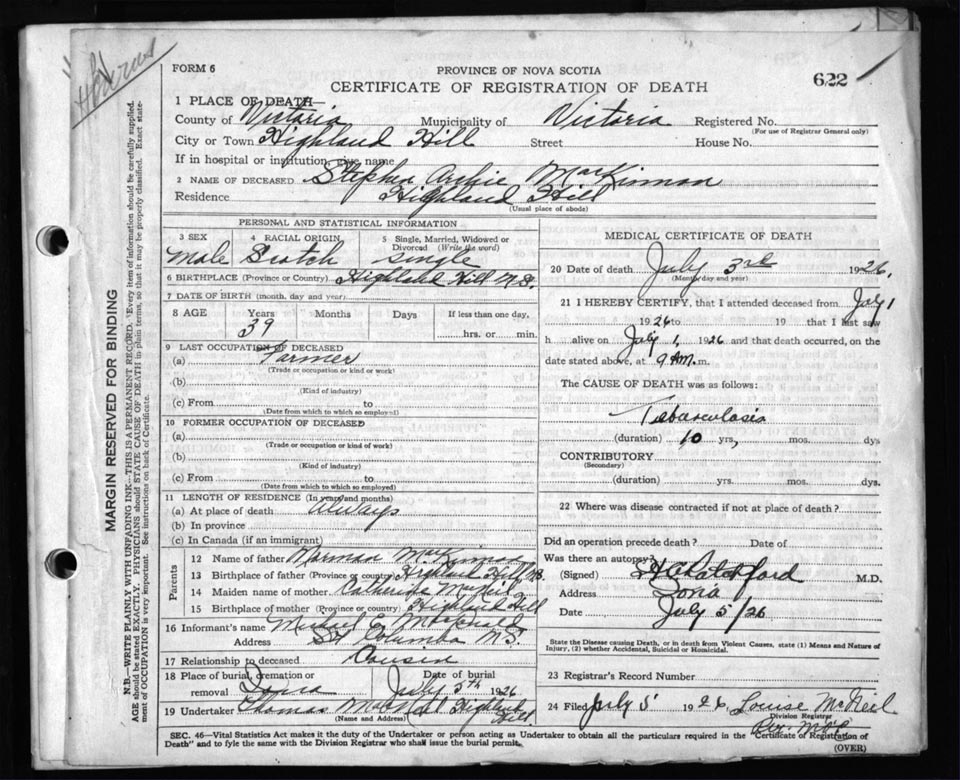 FORM 6
PROVINCE OF NOVA SCOTIA
622
CERTIFICATE OF REGISTRATION OF DEATH
1 PLACE OF DEATH—
County of Victoria Municipality of Victoria Registered No.
(For use of Registrar General only)
City or Town Highland Hill Street House No.
If in hospital or institution, give name
2 NAME OF DECEASED Stephen Archie MacKinnon
Residence Highland Hill
(Usual place of abode)
PERSONAL AND STATISTICAL INFORMATION
3 SEX 4 RACIAL ORIGIN 5 Single, Married, Widowed or Divorced (Write the word)
Male Scotch Single
6 BIRTHPLACE (Province or Country) Highland Hill N.S.
7 DATE OF BIRTH (month, day and year)
8 AGE Years Months Days If less than one day,
39 hrs. or min.
9 LAST OCCUPATION OF DECEASED
(a) Farmer
(Trade or occupation or kind or work)
(b)
(Kind of industry)
(c) From to
(Date from which to which so employed)
10 FORMER OCCUPATION OF DECEASED
(a)
(Trade or occupation or kind of work)
(b)
(Kind of industry)
(c) From to
(Date from which to which so employed)
11 LENGTH OF RESIDENCE (In years and months)
(a) At place of death always
(b) In province
(c) In Canada (if an immigrant)
Parents
12 Name of father Norman MacKinnon
13 Birthplace of father (Province or country) Highland Hill N.S.
14 Maiden name of mother Catherine
15 Birthplace of mother (Province or country) Highland Hill
16 Informant's name Michael E. McDonald
Address St Columba N.S.
17 Relationship to deceased Cousin
18 Place of burial, cremation or removal Iona Date of burial July 5th 1926
19 Undertaker Thomas MacNeil Highland Hill
(Name and Address)
MEDICAL CERTIFICATE OF DEATH
20 Date of death July 3rd 1926.
(Month/day and year)
21 I HEREBY CERTIFY, that I attended deceased from July 1
1926 to 19 that I last saw
h alive on July 1, 1926 and that death occurred, on the
date stated above, at 9 A.M. m.
The CAUSE OF DEATH was as follows:
Tuberculosis
(duration) 10 yrs, mos. dys
CONTRIBUTORY
(Secondary)
(duration) yrs. mos. dys.
22 Where was disease contracted if not at place of death?
Did an operation precede death? Date of
Was there an autopsy?
(Signed) M.D.
Address Iona
Date July 5/26
State the Disease causing Death, or in death from Violent Causes, state (1) Means and Nature of Injury, (2) whether Accidental, Suicidal or Homicidal.
23 Registrar's Record Number
24 Filed July 5 1926 Louise McNeil
Division Registrar
SEC. 46—Vital Statistics Act makes it the duty of the Undertaker or person acting as Undertaker to obtain all the particulars required in the "Certificate of Registration of
Death" and to fyle the same with the Division Registrar who shall issue the burial permit.
(OVER)
MARGIN RESERVED FOR BINDING
N.B.—WRITE PLAINLY WITH UNFADING INK—THIS IS A PERMANENT RECORD. Every item of information should be carefully supplied.
AGE should be stated EXACTLY. PHYSICIANS should STATE CAUSE OF DEATH in plain terms, so that it may be properly classified. Exact state-
ment of OCCUPATION is very important. See instructions on back of Certificate.